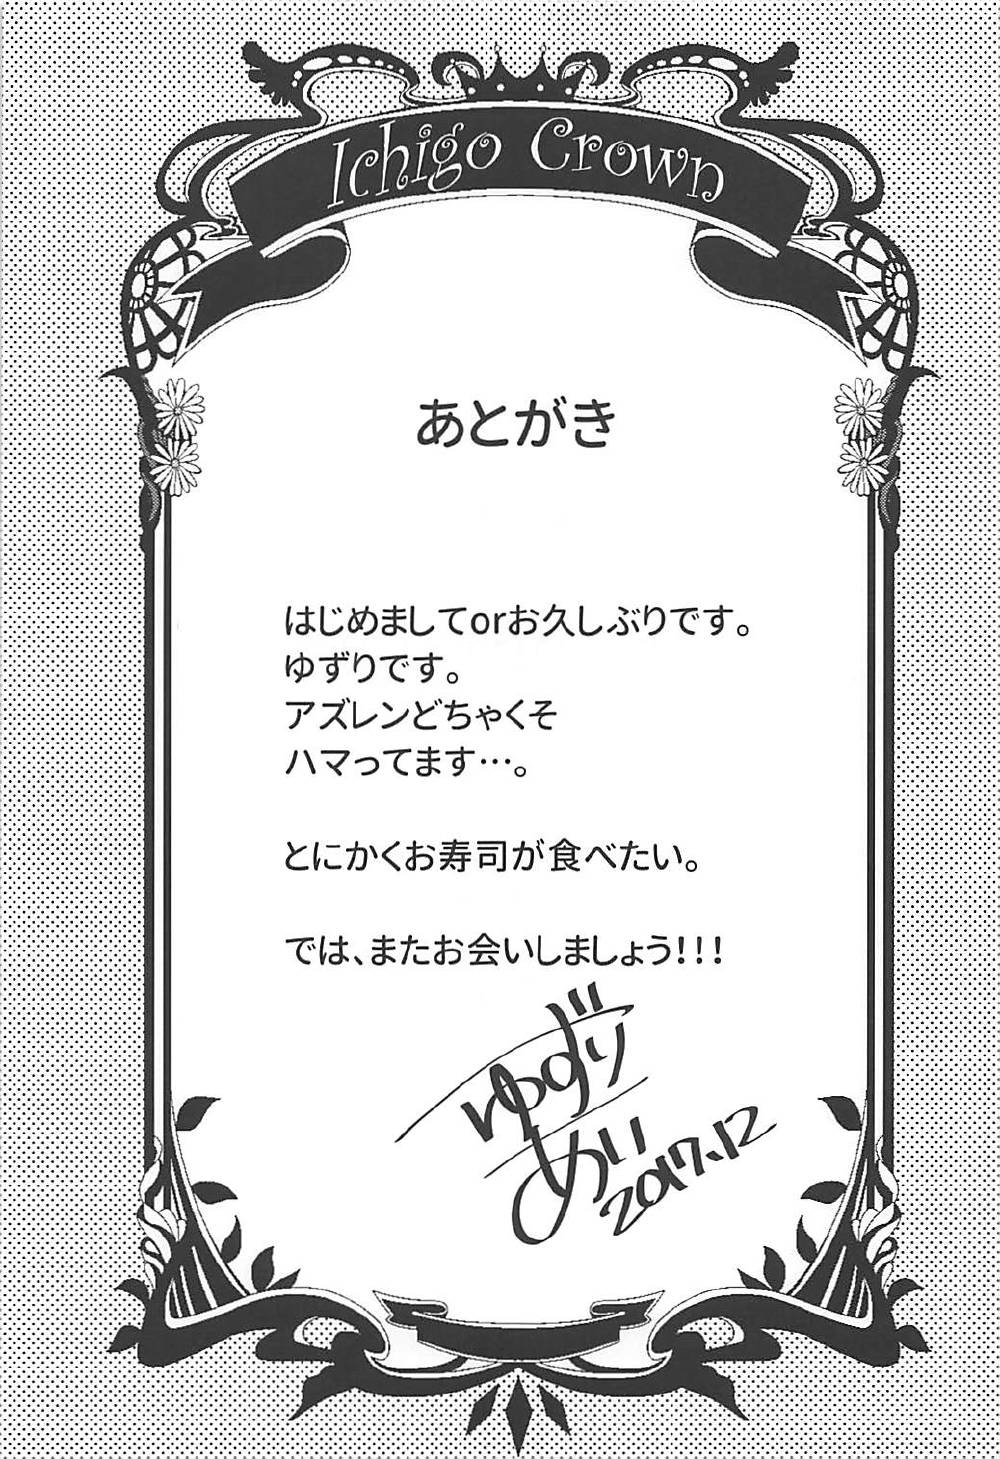 Ichigo Crown
あとがき
はじめましてorお久しぶりです。
ゆずりです。
アズレンどちゃくそ
ハマってます…。
とにかくお寿司が食べたい。
では、またお会いしましょう!!!
ゆずり
めい
2017.12